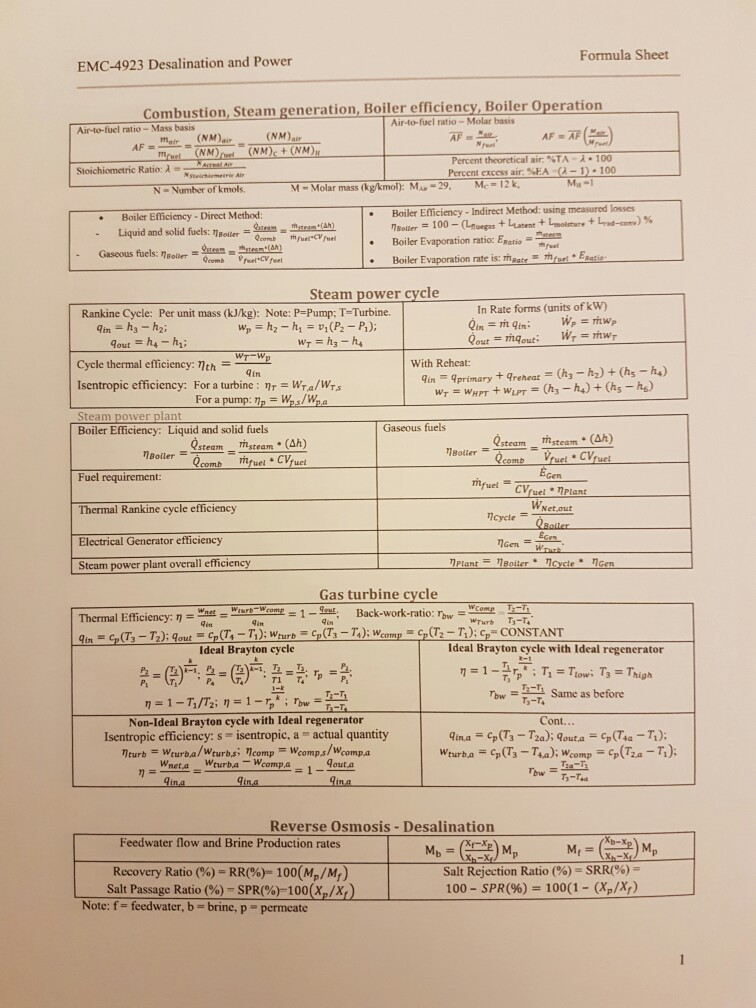 EMC-4923 Desalination and Power
Formula Sheet
Combustion, Steam generation, Boiler efficiency, Boiler Operation
Air-to-fuel ratio – Mass basis
AF = m_air/m_fuel = (NM)_air/(NM)_fuel = (NM)_air/((NM)_C + (NM)_H)
Air-to-fuel ratio – Molar basis
A̅F̅ = N_air/N_fuel; AF = A̅F̅ (M_air/M_fuel)
Stoichiometric Ratio: λ = N_Actual Air/N_Stoichiometric Air
Percent theoretical air: %TA = λ * 100
Percent excess air: %EA =(λ − 1) * 100
N = Number of kmols. M = Molar mass (kg/kmol): M_Air = 29, M_C = 12 k, M_H =1
• Boiler Efficiency - Direct Method:
- Liquid and solid fuels: η_Boiler = Q̇_steam/Q̇_comb = ṁ_steam*(Δh)/ṁ_fuel*CV_fuel
- Gaseous fuels: η_Boiler = Q̇_steam/Q̇_comb = ṁ_steam*(Δh)/V̇_fuel*CV_fuel
• Boiler Efficiency - Indirect Method: using measured losses
η_Boiler = 100 − (L_fluegas + L_Latent + L_moisture + L_rad−conv) %
• Boiler Evaporation ratio: E_Ratio = ṁ_steam/ṁ_fuel
• Boiler Evaporation rate is: ṁ_Rate = ṁ_fuel * E_Ratio.
Steam power cycle
Rankine Cycle: Per unit mass (kJ/kg): Note: P=Pump; T=Turbine.
q_in = h₃ − h₂; w_P = h₂ − h₁ = v₁(P₂ − P₁);
q_out = h₄ − h₁; w_T = h₃ − h₄
In Rate forms (units of kW)
Q̇_in = ṁ q_in; Ẇ_P = ṁw_P
Q̇_out = ṁq_out; Ẇ_T = ṁw_T
Cycle thermal efficiency: η_th = (w_T−w_p)/q_in
Isentropic efficiency: For a turbine : η_T = W_T,a/W_T,s
For a pump: η_p = W_p,s/W_p,a
With Reheat:
q_in = q_primary + q_reheat = (h₃ − h₂) + (h₅ − h₄)
w_T = w_HPT + w_LPT = (h₃ − h₄) + (h₅ − h₆)
Steam power plant
Boiler Efficiency: Liquid and solid fuels
η_Boiler = Q̇_steam/Q̇_comb = ṁ_steam * (Δh)/ṁ_fuel * CV_fuel
Gaseous fuels
η_Boiler = Q̇_steam/Q̇_comb = ṁ_steam * (Δh)/V̇_fuel * CV_fuel
Fuel requirement:
ṁ_fuel = Ė_Gen/(CV_fuel * η_Plant)
Thermal Rankine cycle efficiency
η_Cycle = Ẇ_Net,out/Q̇_Boiler
Electrical Generator efficiency
η_Gen = Ė_Gen/Ẇ_Turb.
Steam power plant overall efficiency
η_Plant = η_Boiler * η_Cycle * η_Gen
Gas turbine cycle
Thermal Efficiency: η = w_net/q_in = (w_turb−w_comp)/q_in = 1 − q_out/q_in; Back-work-ratio: r_bw = w_Comp/w_Turb = (T₂−T₁)/(T₃−T₄).
q_in = c_p(T₃ − T₂); q_out = c_p(T₄ − T₁); w_turb = c_p(T₃ − T₄); w_comp = c_p(T₂ − T₁); c_p= CONSTANT
Ideal Brayton cycle
P₂/P₁ = (T₂/T₁)^(k/(k−1); P₃/P₄ = (T₃/T₄)^(k/(k−1); T₂/T1 = T₃/T₄; r_p = P₂/P₁;
η = 1 − T₁/T₂; η = 1 − r_p^((1−k)/k); r_bw = (T₂−T₁)/(T₃−T₄)
Ideal Brayton cycle with Ideal regenerator
η = 1 − (T₁/T₃) r_p^((k−1)/k); T₁ = T_low; T₃ = T_high
r_bw = (T₂−T₁)/(T₃−T₄) Same as before
Non-Ideal Brayton cycle with Ideal regenerator
Isentropic efficiency: s = isentropic, a = actual quantity
η_turb = w_turb,a/w_turb,s; η_comp = w_comp,s/w_comp,a
η = w_net,a/q_in,a = (w_turb,a − w_comp,a)/q_in,a = 1 − q_out,a/q_in,a
Cont…
q_in,a = c_p(T₃ − T_2a); q_out,a = c_p(T_4a − T₁);
w_turb,a = c_p(T₃ − T_4,a); w_comp = c_p(T_2,a − T₁);
r_bw = (T_2a−T₁)/(T₃−T_4a)
Reverse Osmosis - Desalination
Feedwater flow and Brine Production rates
M_b = ((X_f−X_p)/(X_b−X_f)) M_p M_f = ((X_b−X_p)/(X_b−X_f)) M_p
Recovery Ratio (%) = RR(%)= 100(M_p/M_f)
Salt Passage Ratio (%) = SPR(%)=100(X_p/X_f)
Salt Rejection Ratio (%) = SRR(%) =
100 − SPR(%) = 100(1 − (X_p/X_f)
Note: f = feedwater, b = brine, p = permeate
1